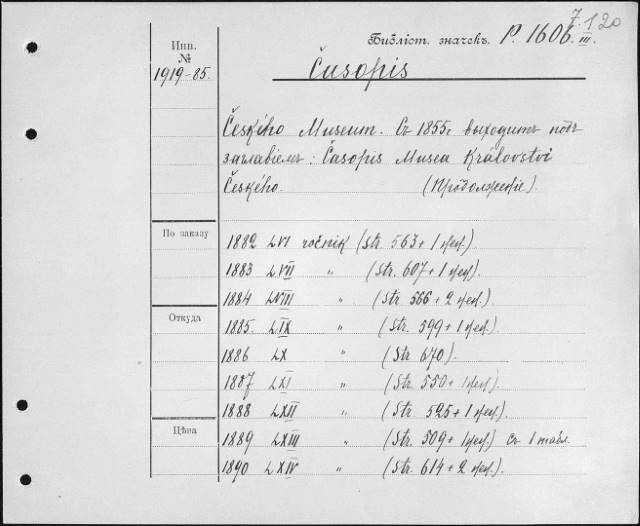 7.120
Библіот. значекъ. P. 1606. III.
Инв.
№
1919-85.
Časopis
Českého Museum. Съ 1855г выходитъ подъ
заглавіемъ: Časopis Musea Královstvi
Českého. (Продолженіе).
По заказу
1882 LVI ročnik (Str. 563 + 1 неп.)
1883 LVII " (Str. 607 + 1 неп.)
1884 LVIII " (Str. 566 + 2 неп.)
Откуда
1885. LIX " (Str. 599 + 1 неп.)
1886 LX " (Str 670).
1887 LXI " (Str. 550 + 1 неп)
1888 LXII " (Str. 525 + 1 неп.)
Цѣна
1889 LXIII " (Str. 509 + 1 неп) съ 1 табл.
1890 LXIV " (Str. 614 + 2 неп.)